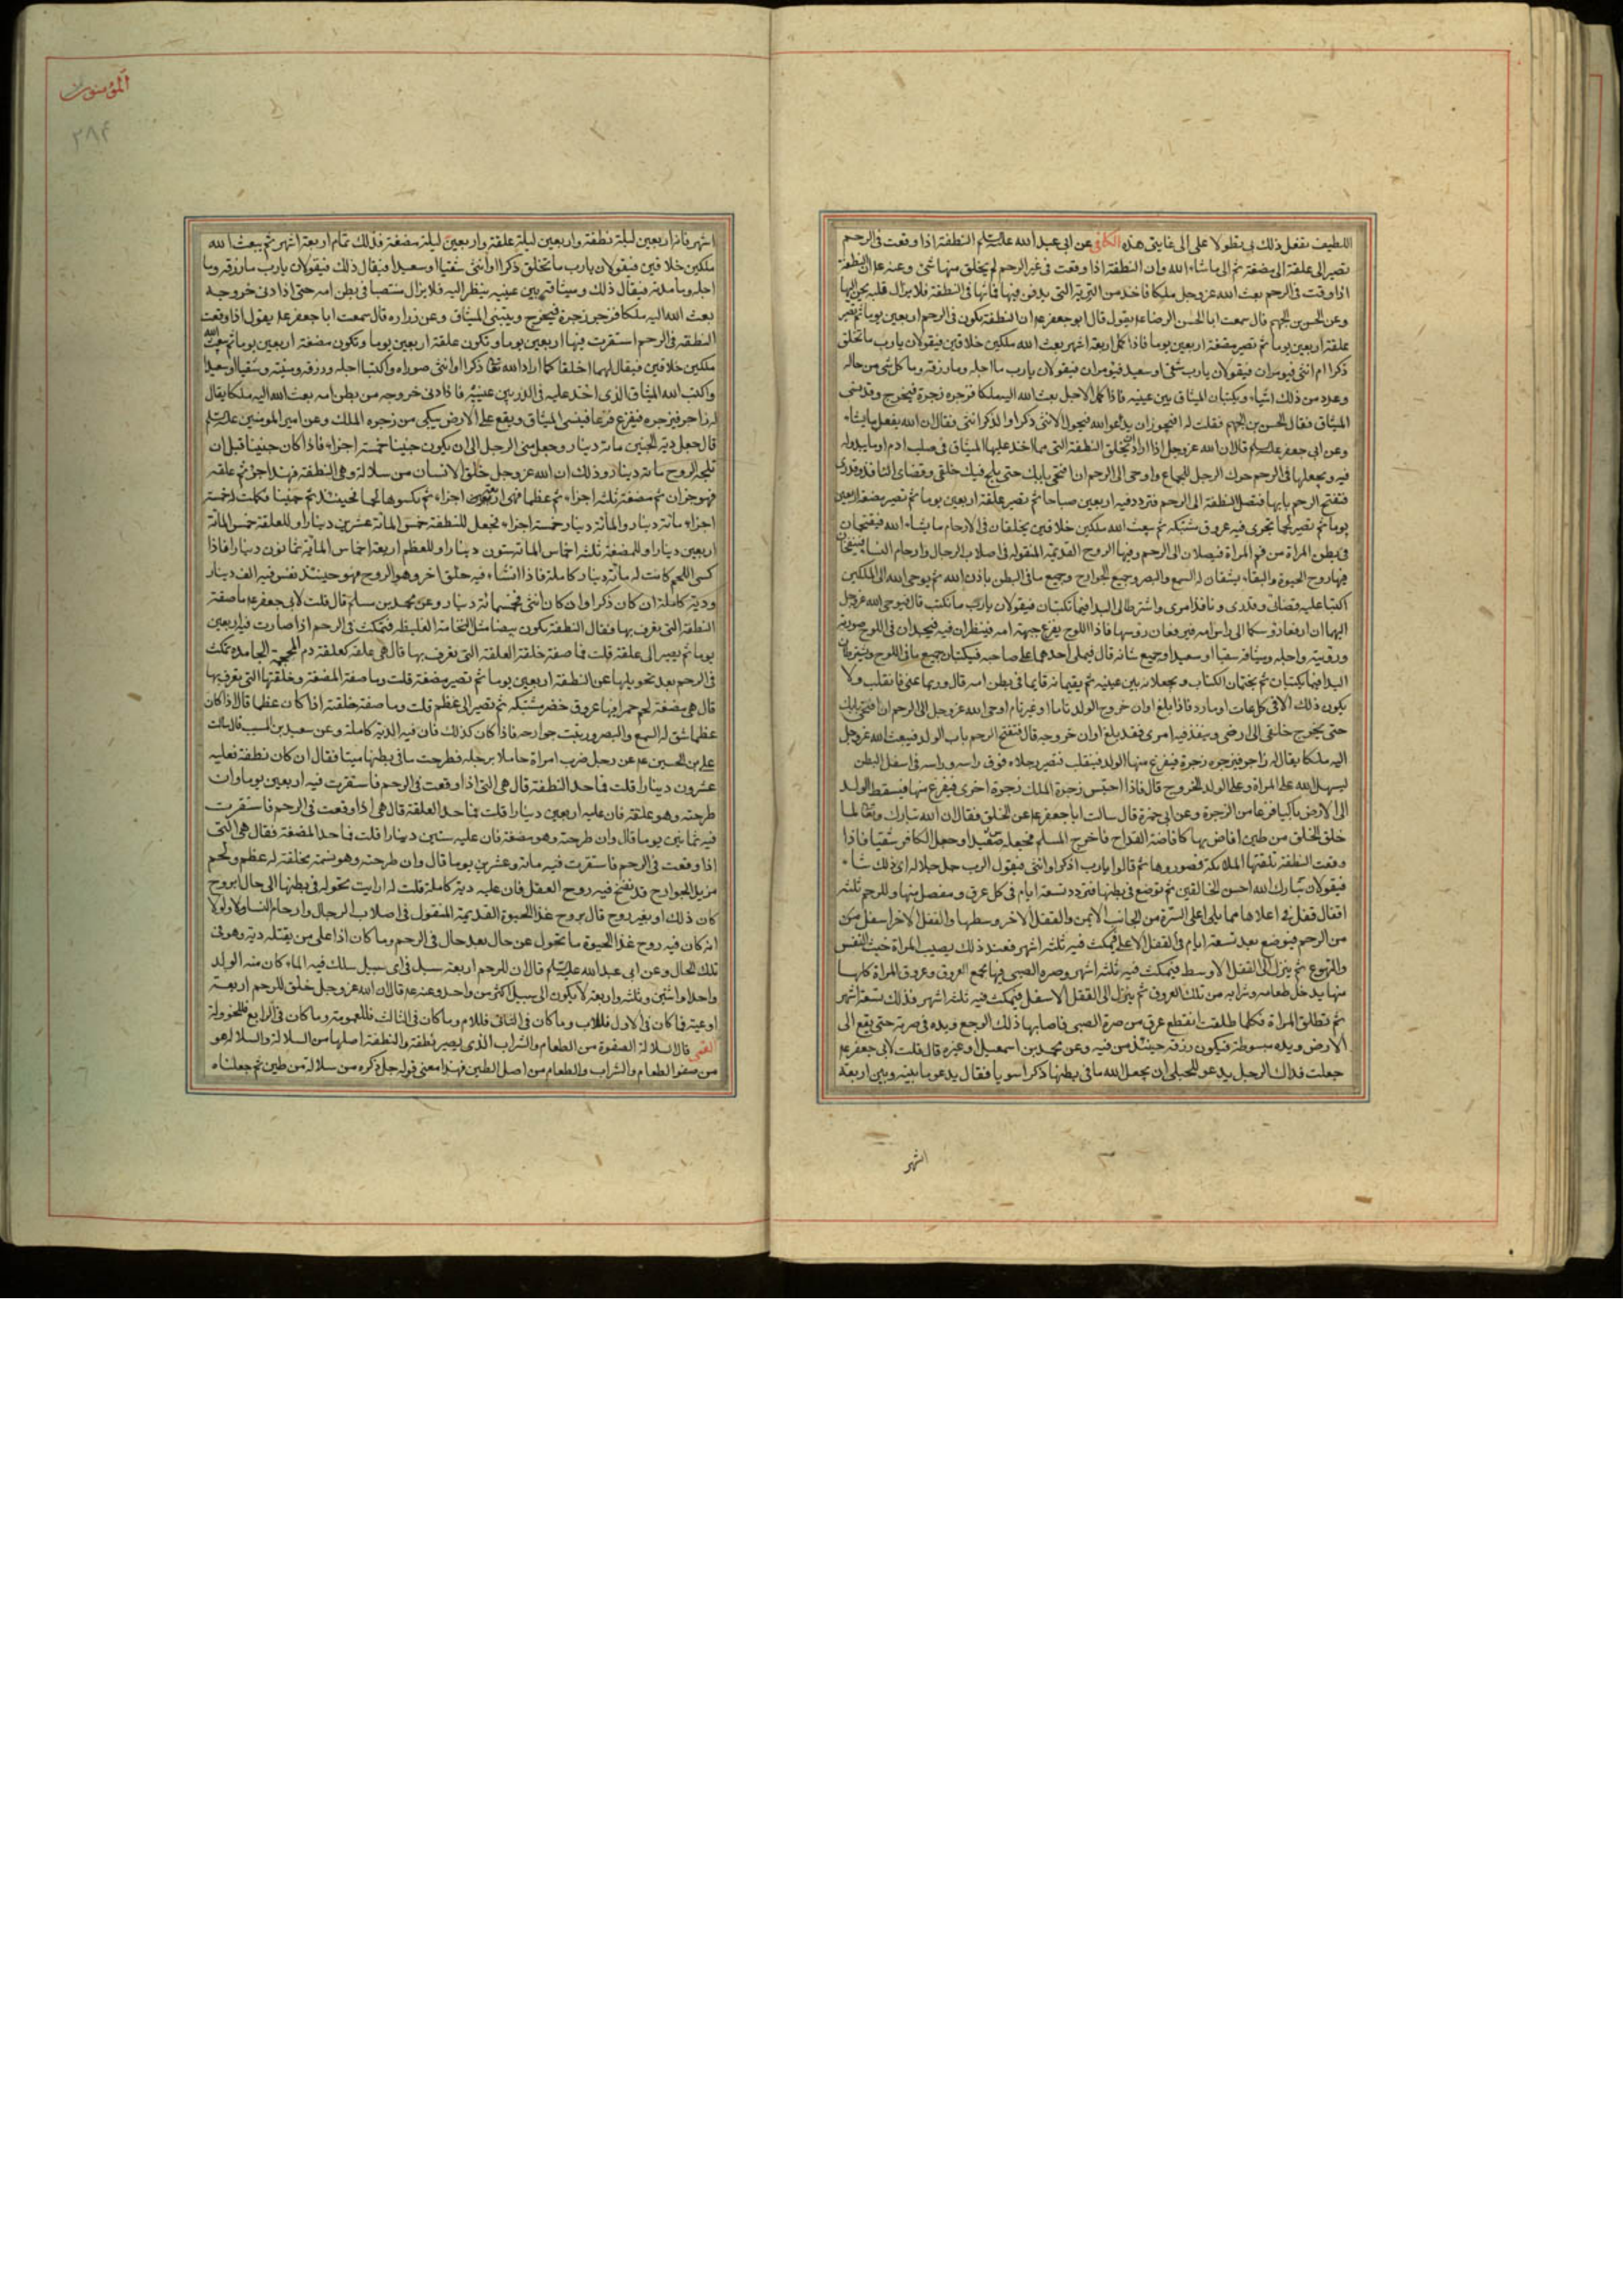 اللطيف تفعل ذلك بي تطولا على الى غايتى هذه الكافى عن ابى عبد الله عليه السلم النطفة اذا وقعت فى الرحم
تصير الى علقة الى مضغة ثم الى ما شاء الله وان النطفة اذا وقعت فى غير الرحم لم يخلق منها شئ وعنه ع ان النطفة
اذا وقعت فى الرحم بعث الله عز وجل ملكا فاخذ من التربة التى يدفن فيها فماثها فى النطفة فلا يزال قلبه يحن اليها
وعن الحسن بن الجهم قال سمعت ابا الحسن الرضا ع يقول قال ابو جعفر ع ان النطفة تكون فى الرحم اربعين يوما ثم تصير
علقة اربعين يوما ثم تصير مضغة اربعين يوما فاذا كمل اربعة اشهر بعث الله ملكين خلاقين فيقولان يا رب ما تخلق
ذكرا ام انثى فيؤمران فيقولان يا رب شقى او سعيد فيؤمران فيقولان يا رب ما اجله وما رزقه وما كل شئ من حاله
وعدد من ذلك اشياء ويكتبان الميثاق بين عينيه فاذا كمل الاجل بعث الله اليه ملكا فزجره زجرة فيخرج وقد نسى
الميثاق فقال الحسن بن الجهم فقلت له افيجوز ان يدعو الله فيحول الانثى ذكرا والذكر انثى فقال ان الله يفعل ما يشاء
وعن ابى جعفر عليه السلم قال ان الله عز وجل اذا اراد ان يخلق النطفة التى مما اخذ عليها الميثاق فى صلب ادم او ما يبدو له
فيه ويجعلها فى الرحم حرك الرجل للجماع واوحى الى الرحم ان افتحى بابك حتى يلج فيك خلقى وقضائى النافذ وقدرى
فتفتح الرحم بابها فتصل النطفة الى الرحم فتردد فيه اربعين صباحا ثم تصير علقة اربعين يوما ثم تصير مضغة اربعين
يوما ثم تصير لحما تجرى فيه عروق مشتبكة ثم يبعث الله ملكين خلاقين يخلقان فى الارحام ما يشاء الله فيقتحمان
فى بطن المراة من فم المراة فيصلان الى الرحم وفيها الروح القديمة المنقولة فى اصلاب الرجال وارحام النساء فينفخان
فيها روح الحيوة والبقاء يشقان له السمع والبصر وجميع الجوارح وجميع ما فى البطن باذن الله ثم يوحى الله الى الملكين
اكتبا عليه قضائى وقدرى ونافذ امرى واشترطا لى البدا فيما تكتبان فيقولان يا رب ما نكتب قال فيوحى الله عز وجل
اليهما ان ارفعا رؤسكما الى راس امه فيرفعان رؤسهما فاذا اللوح يقرع جبهة امه فينظران فيه فيجدان فى اللوح صورته
ورؤيته واجله وميثاقه سقيا او سعيدا وجميع شانه قال فيملى احدهما على صاحبه فيكتبان جميع ما فى اللوح ويشترطان
البدا فيما يكتبان ثم يختمان الكتاب ويجعلانه بين عينيه ثم يقيمانه قايما فى بطن امه قال وربما عتى فانقلب ولا
يكون ذلك الا فى كل عات او مارد فاذا بلغ اوان خروج الولد تاما او غير تام اوحى الله عز وجل الى الرحم ان افتحى بابك
حتى يخرج خلقى الى ارضى وينفذ فيه امرى فقد بلغ اوان خروجه قال فتفتح الرحم باب الولد فيبعث الله عز وجل
اليه ملكا يقال له زاجر فيزجره زجرة فيفزع منها الولد فينقلب فتصير رجلاه فوق راسه وراسه فى اسفل البطن
ليسهل الله على المراة وعلى الولد الخروج قال فاذا احتبس زجره الملك زجرة اخرى فيفزع منها فيسقط الولد
الى الارض باكيا فزعا من الزجرة وعن ابى حمزة قال سالت ابا جعفر ع عن الخلق فقال ان الله تبارك وتعالى لما
خلق الخلق من طين افاض بها كافاضة القداح فاخرج المسلم فجعله سعيدا وجعل الكافر شقيا فاذا
وقعت النطفة تلقتها الملائكة فصوروها ثم قالوا يا رب اذكرا او انثى فيقول الرب جل جلاله اى ذلك شاء
فيقولان تبارك الله احسن الخالقين ثم توضع فى بطنها فتردد تسعة ايام فى كل عرق ومفصل منها وللرحم ثلثة
اقفال قفل فى اعلاها مما يلى اعلى السرة من الجانب الايمن والقفل الاخر وسطها والقفل الاخر اسفل من
من الرحم فيوضع بعد تسعة ايام فى القفل الاعلى فيمكث فيه ثلثة اشهر فعند ذلك يصيب المراة خبث النفس
والتهوع ثم ينزل الى القفل الاوسط فيمكث فيه ثلثة اشهر وصرة الصبى فيها مجمع العروق وعروق المراة كلها
منها يدخل طعامه وشرابه من تلك العروق ثم ينزل الى القفل الاسفل فيمكث فيه ثلثة اشهر فذلك تسعة اشهر
ثم تطلق المراة فكلما طلقت انقطع عرق من صرة الصبى فاصابها ذلك الوجع ويده فى صرته حتى يقع الى
الارض ويده مبسوطة فيكون رزقه حينئذ من فيه وعن محمد بن اسمعيل او غيره قال قلت لابى جعفر ع
جعلت فداك الرجل يدعو للحبلى ان يجعل الله ما فى بطنها ذكرا سويا فقال يدعو ما بينه وبين اربعة
اشهر
المؤمنون
٢٨٤
اشهر فانه اربعين ليلة نطفة واربعين ليلة علقة واربعين ليلة مضغة فذلك تمام اربعة اشهر ثم يبعث الله
ملكين خلاقين فيقولان يا رب ما تخلق ذكرا او انثى شقيا او سعيدا فيقال ذلك فيقولان يا رب ما رزقه وما
اجله وما مدته فيقال ذلك وميثاقه بين عينيه ينظر اليه فلا يزال منتصبا فى بطن امه حتى اذا دنى خروجه
بعث الله اليه ملكا فزجره زجرة فيخرج وينسى الميثاق وعن زراره قال سمعت ابا جعفر ع يقول اذا وقعت
النطفة فى الرحم استقرت فيها اربعين يوما وتكون علقة اربعين يوما وتكون مضغة اربعين يوما ثم يبعث الله
ملكين خلاقين فيقال لهما اخلقا كما اراد الله تعالى ذكرا او انثى صوراه واكتبا اجله ورزقه ومنيته وشقيا او سعيدا
واكتب الله الميثاق الذى اخذ عليه فى الذر بين عينيه فاذا دنى خروجه من بطن امه بعث الله اليه ملكا يقال
له زاجر فيزجره فيفزع فزعا فينسى الميثاق ويقع على الارض يبكى من زجره الملك وعن امير المؤمنين عليه السلم
قال جعل دية الجنين مائة دينار وجعل منى الرجل الى ان يكون جنينا خمسة اجزاء فاذا كان جنينا قبل ان
تلجه الروح مائة دينار وذلك ان الله عز وجل خلق الانسان من سلالة وهى النطفة فهذا جزء ثم علقة
فهو جزءان ثم مضغة ثلثة اجزاء ثم عظما فهى اربعة اجزاء ثم يكسوها لحما فحينئذ ثم جنينا فكملت له خمسة
اجزاء مائة دينار والمائة دينار خمسة اجزاء فجعل للنطفة خمس المائة عشرين دينارا وللعلقة خمسى المائة
اربعين دينارا وللمضغة ثلثة اخماس المائة ستون دينارا وللعظم اربعة اخماس المائة ثمانون دينارا فاذا
كسى اللحم كانت له مائة دينار كاملة فاذا انشاء فيه خلق اخر وهو الروح فهو حينئذ نفس فيه الف دينار
ودية كاملة ان كان ذكرا وان كان انثى فخمسمائة دينار وعن محمد بن مسلم قال قلت لابى جعفر ع ما صفة
النطفة التى تعرف بها فقال النطفة تكون بيضا مثل النخامة الغليظة فتمكث فى الرحم اذا صارت فيه اربعين
يوما ثم تصير الى علقة قلت فما صفة خلقة العلقة التى تعرف بها قال هى علقة كعلقة دم المحجمة الجامدة تمكث
فى الرحم بعد تحويلها عن النطفة اربعين يوما ثم تصير مضغة قلت وما صفة المضغة وخلقتها التى تعرف بها
قال هى مضغة لحم حمرا فيها عروق خضر مشتبكة ثم تصير الى عظم قلت وما صفة خلقته اذا كان عظما قال اذا كان
عظما شق له السمع والبصر ورتبت جوارحه فاذا كان كذلك فان فيه الدية كاملة وعن سعيد بن المسيب قال سالت
على بن الحسين ع عن رجل ضرب امراة حاملا برجله فطرحت ما فى بطنها ميتا فقال ان كان نطفة فعليه
عشرون دينارا قلت فما حد النطفة قال هى التى اذا وقعت فى الرحم فاستقرت فيه اربعين يوما وان
طرحته وهو علقة فان عليه اربعين دينارا قلت فما حد العلقة قال هى اذا وقعت فى الرحم فاستقرت
فيه ثمانين يوما قال وان طرحته وهو مضغة فان عليه ستين دينارا قلت فما حد المضغة فقال هى التى
اذا وقعت فى الرحم فاستقرت فيه مائة وعشرين يوما قال وان طرحته وهو نسمة مخلقة له عظم ولحم
مزيل الجوارح قد نفخ فيه روح العقل فان عليه دية كاملة قلت له ارايت تحوله فى بطنها الى حال ابروح
كان ذلك او بغير روح قال بروح غذا الحيوة القديمة المنقول فى اصلاب الرجال وارحام النساء ولولا
انه كان فيه روح غذا الحيوة ما تحول عن حال بعد حال فى الرحم وما كان اذا على من يقتله دية وهو فى
تلك الحال وعن ابى عبد الله عليه السلم قال ان للرحم اربعة سبل فى اى سبيل سلك فيه الماء كان منه الولد
واحدا واثنين وثلثة واربعة لا يكون الى سبيل اكثر من واحد وعنه ع قال ان الله عز وجل خلق للرحم اربعة
اوعية فما كان فى الاول فللاب وما كان فى الثانى فللام وما كان فى الثالث فللعمومة وما كان فى الرابع فللخؤولة
القمى قال السلالة الصفوة من الطعام والشراب الذى يصير نطفة والنطفة اصلها من السلالة والسلالة هو
من صفو الطعام والشراب والطعام من اصل الطين فهذا معنى قوله جل ذكره من سلالة من طين ثم جعلناه